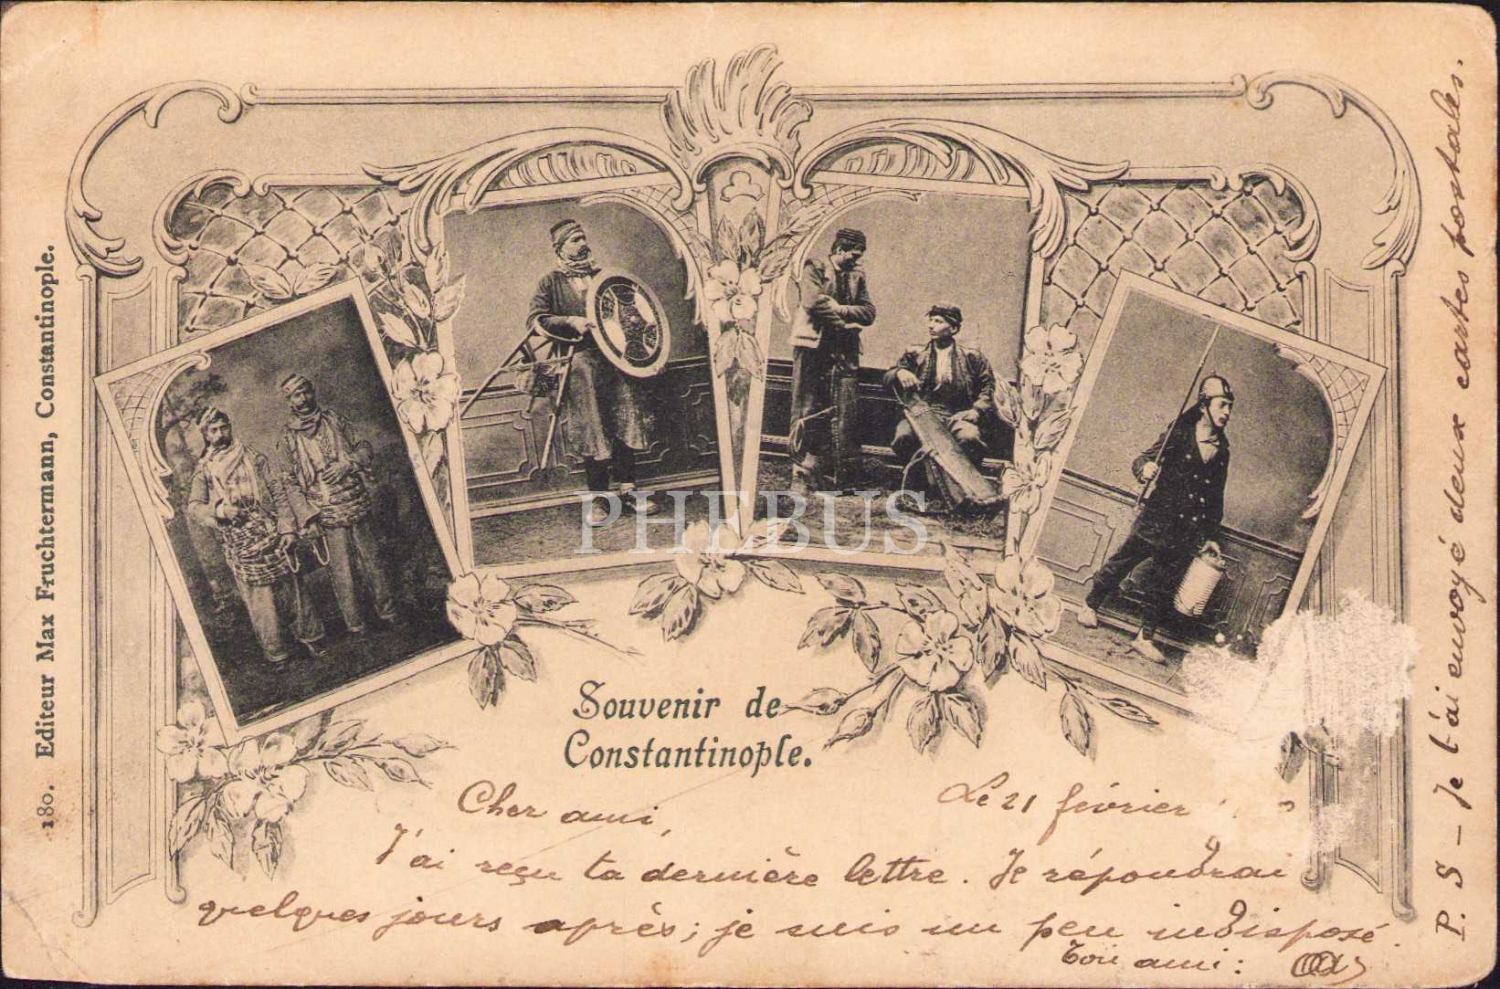 180. Editeur Max Fruchtermann, Constantinople.
PHEBUS
Souvenir de
Constantinople.
Cher ami,
Le 21 février
J'ai reçu ta dernière lettre. Je répondrai
quelques jours après; je suis un peu indisposé.
Ton ami:
P. S – Je t'ai envoyé deux cartes postales.